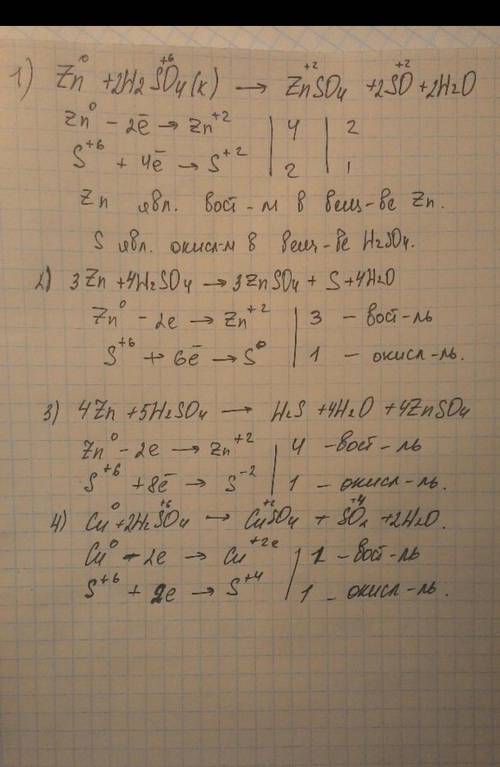 1) Zn⁰ + 2H2 S⁺⁶O4 (к) → Zn⁺²SO4 + 2S⁺²O + 2H2O
Zn⁰ - 2ē → Zn⁺² | 4 | 2
S⁺⁶ + 4ē → S⁺² | 2 | 1
Zn явл. вост-м в вещ-ве Zn.
S явл. окисл-м в вещ-ве H2SO4.
2) 3Zn + 4H2SO4 → 3ZnSO4 + S + 4H2O
Zn⁰ - 2e → Zn⁺² | 3 - вост-ль
S⁺⁶ + 6ē → S⁰ | 1 - окисл-ль.
3) 4Zn + 5H2SO4 → H2S + 4H2O + 4ZnSO4
Zn⁰ - 2e → Zn⁺² | 4 - вост-ль
S⁺⁶ + 8ē → S⁻² | 1 - окисл-ль.
4) Cu⁰ + 2H2S⁺⁶O4 → Cu⁺²SO4 + S⁺⁴O2 + 2H2O.
Cu⁰ - 2e → Cu⁺²ᵉ | 1 - вост-ль
S⁺⁶ + 2e → S⁺⁴ | 1 - окисл-ль.